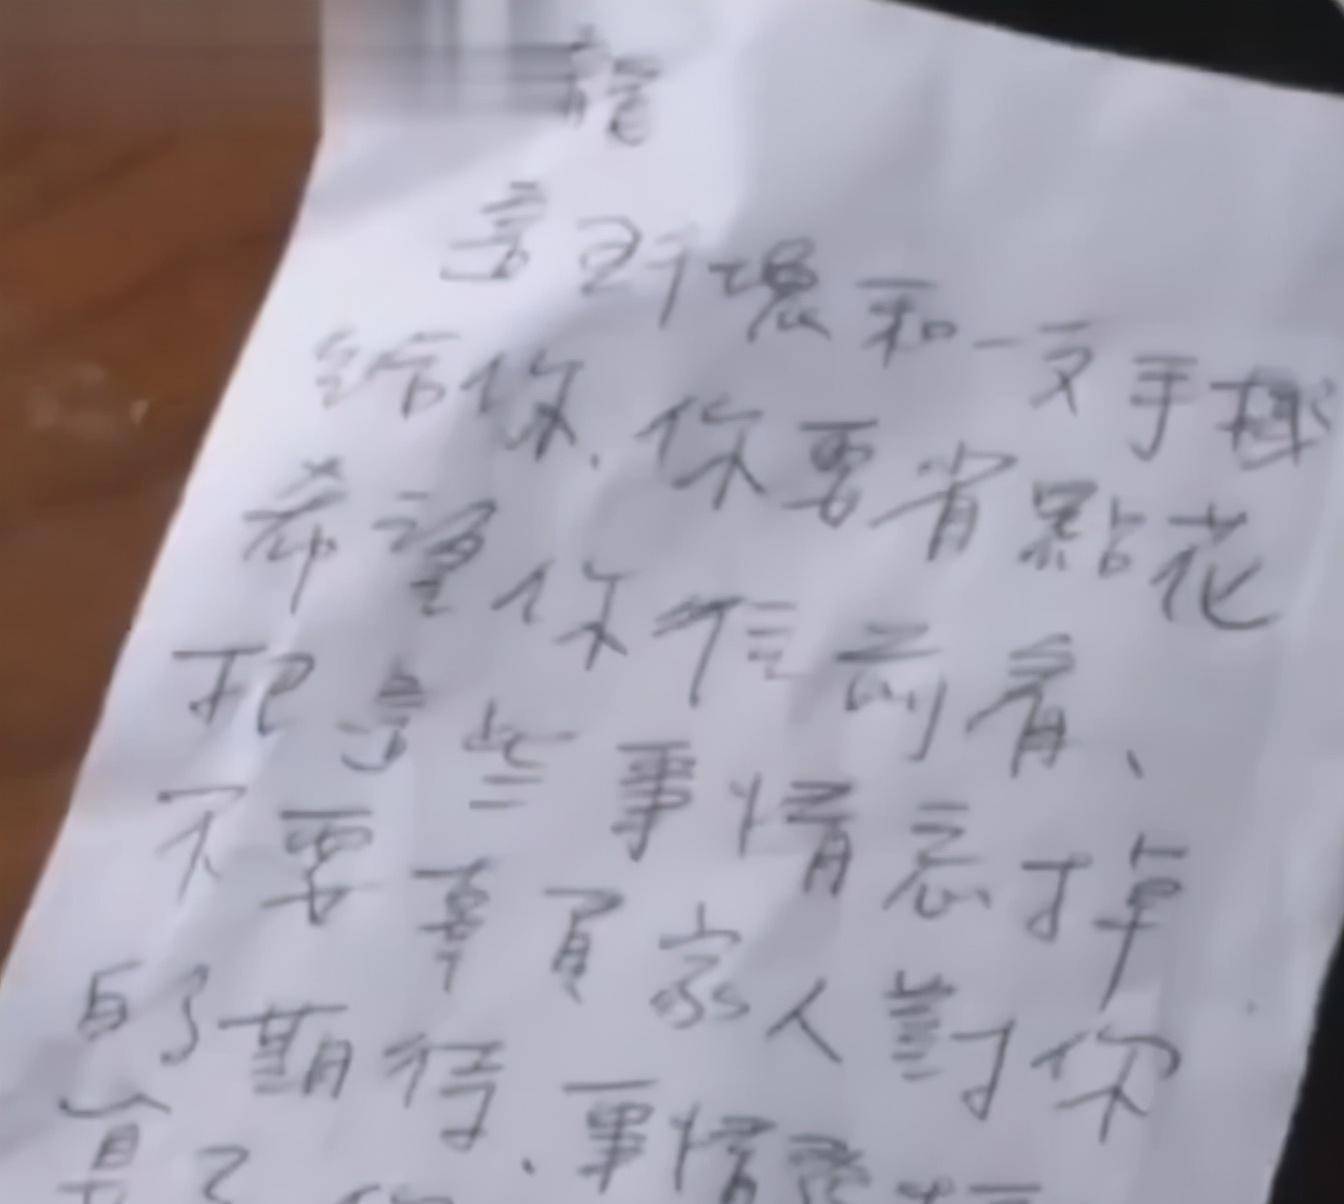 龍
這2千塊和一支手機
給你、你要省點花
希望你往前看、
把這些事情忘掉
不要辜負家人對你
的期待、事情發
算了你